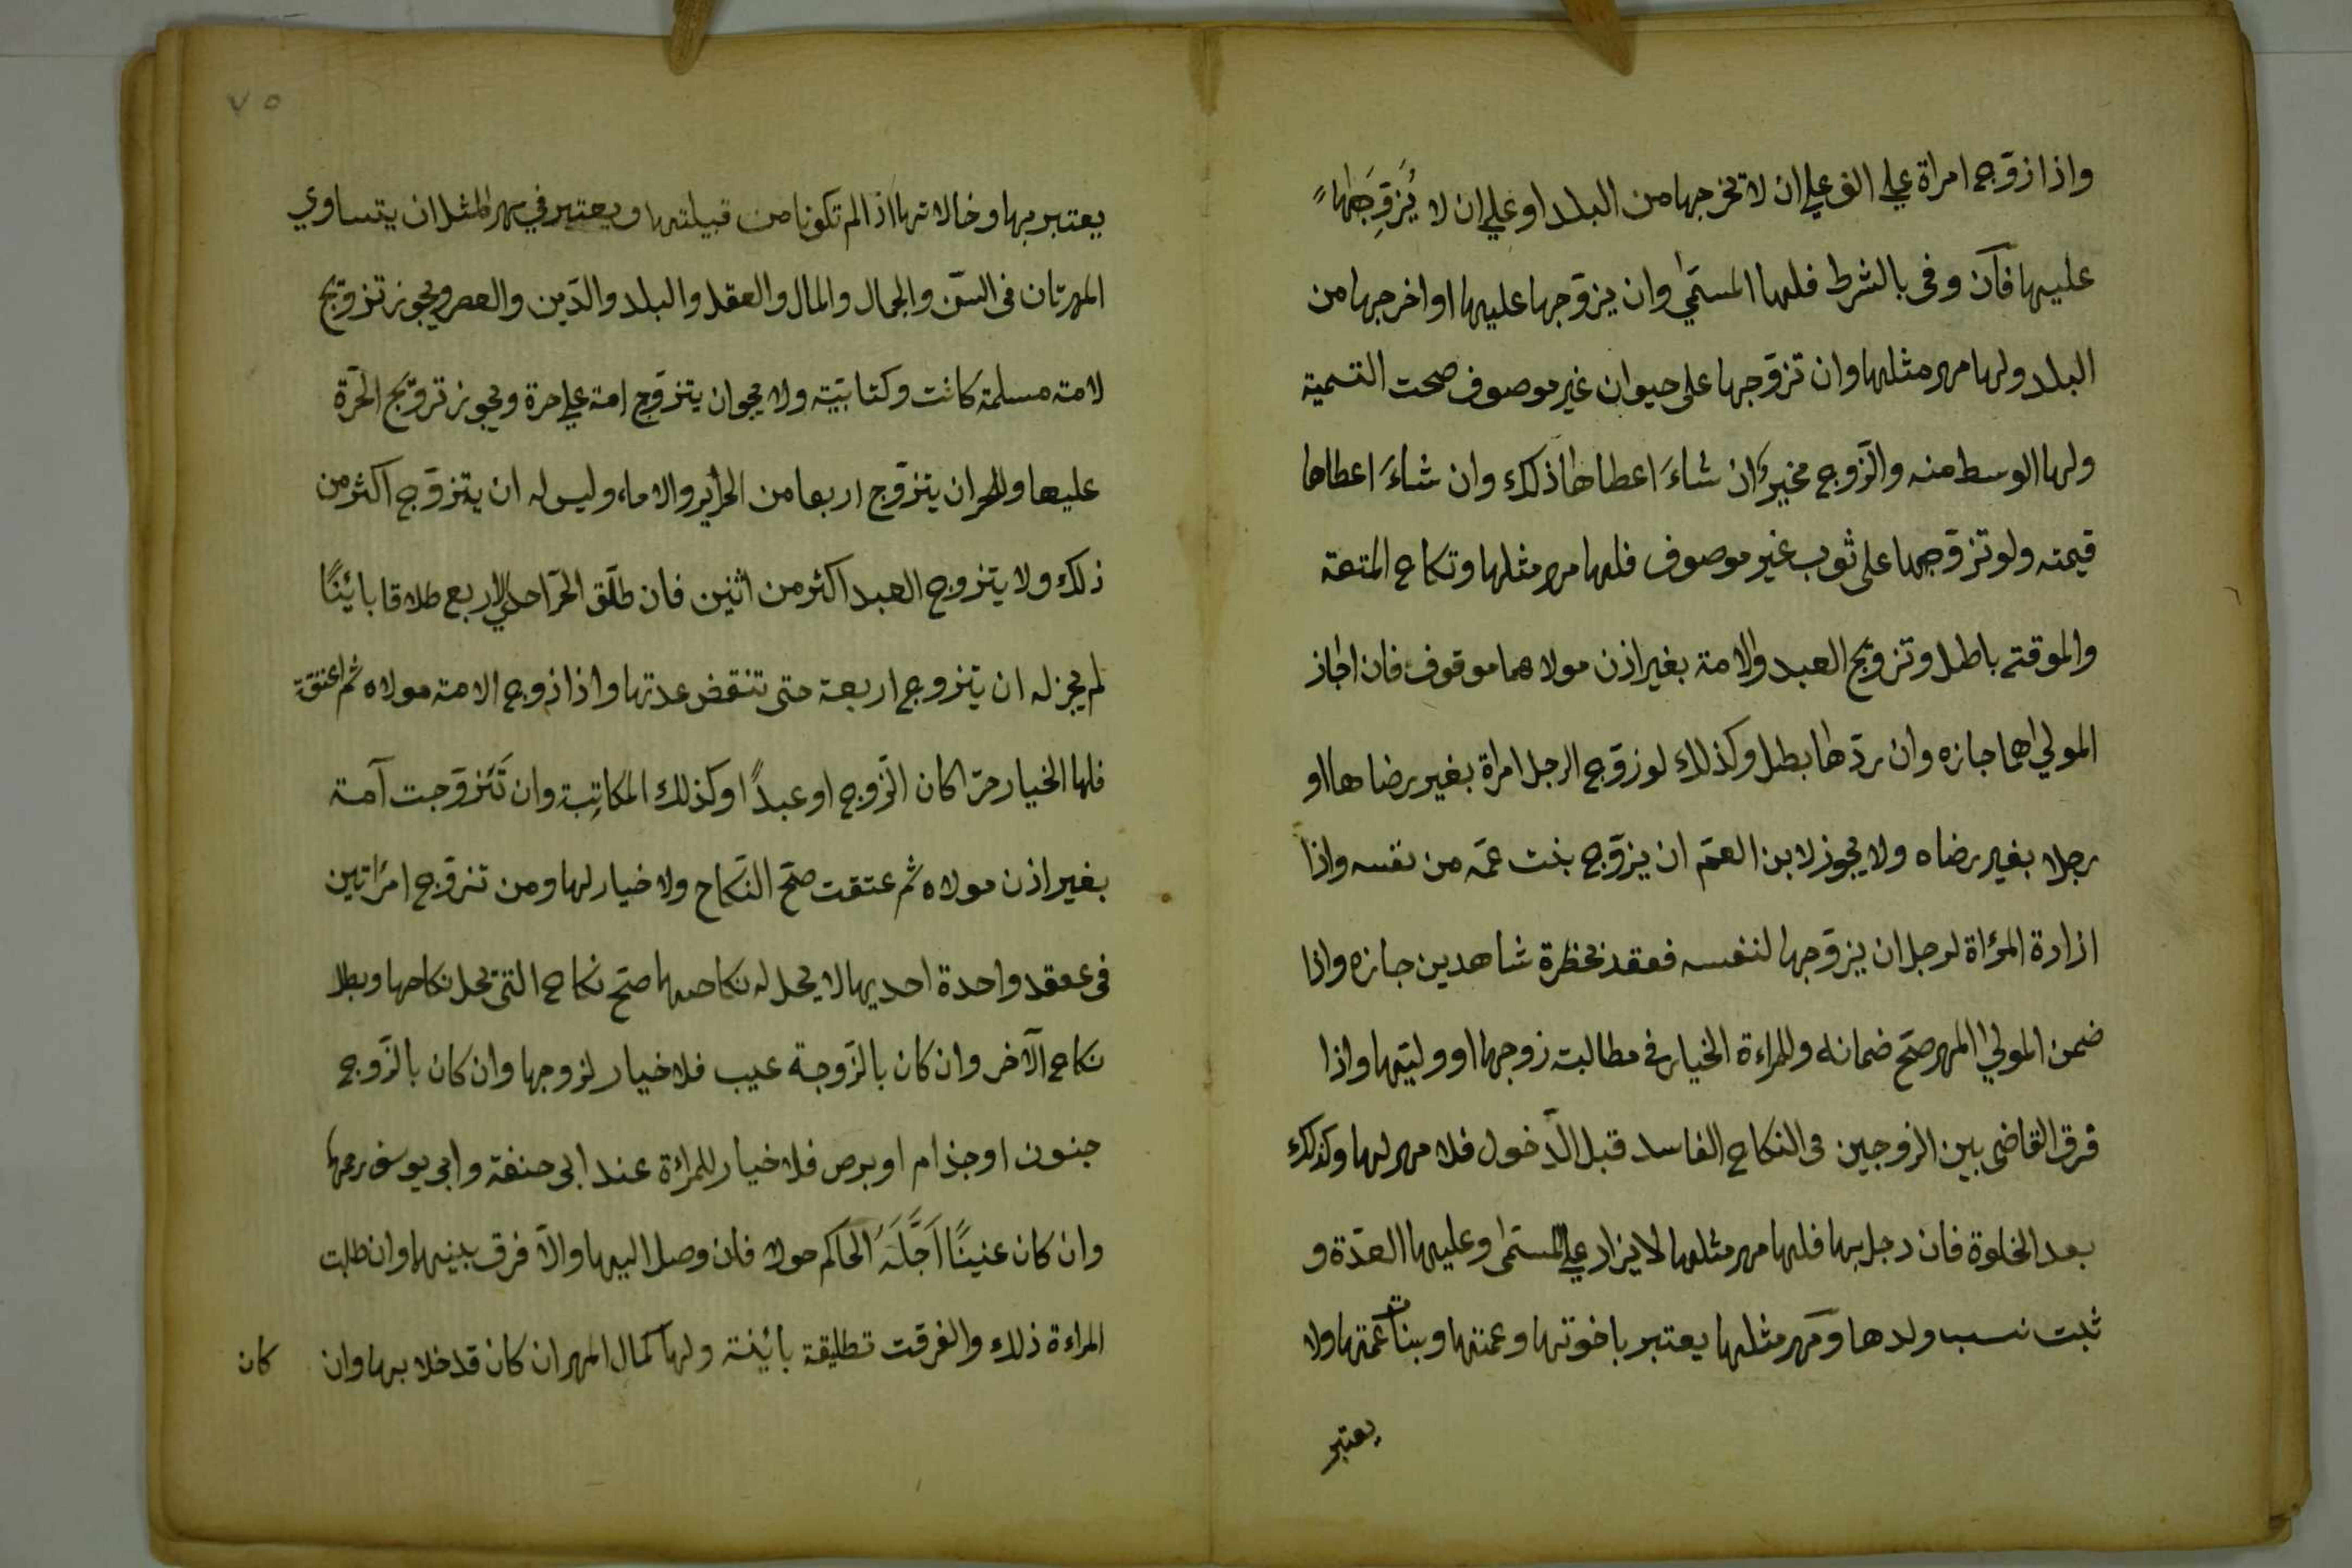 واذا زوّج امراة على الف على ان لا تخرجها من البلد او على ان لا يُزوِّجَها
عليها فاَن وفى بالشرط فلها المسمّى وان يزوّجها عليها او اخرجها من
البلد ولها مهر مثلها وان تزوّجها على حيوان غير موصوف صحت التسمية
ولها الوسط منه والزّوج مخير ان شاءَ اعطاها ذلك وان شاءَ اعطاها
قيمته ولو تزوّجها على ثوب غير موصوف فلها مهر مثلها ونكاح المتعة
والموقته باطل وتزويج العبد والامة بغير اذن مولاهما موقوف فان اجاز
المولي اهما جازه وان ردّها بطل وكذلك لو زوّج الرجل امراة بغير رضاها او
رجلا بغير رضاه ولا يجوز لابن العمّ ان يزوّج بنت عمّه من نفسه واذا
ازادة المرٔاة لرجل ان يزوّجها لنفسه فعقد بحظرة شاهدين جازه واذا
ضمن المولي المهر صحّ ضمانه وللمراءة الخيار في مطالبت زوجها او وليتها واذا
فرق القاضى بين الزوجين فى النكاح الفاسد قبل الدّخول فلا مهر لها وكذلك
بعد الخلوة فان دجل بها فلها مهر مثلها لا يزاد على المسمّى وعليها العدّة و
ثبت نسب ولدها ومَهر مثلها يعتبر باخوتها وعمتها وبنات عمّتها ولا
يعتبر
٧٥
يعتبر بها وخالاتها اذا لم تكونا من قبيلتها ويعتبر في مهر المثل ان يتساوي
المهرتان فى السّن والجمال والمال والعقل والبلد والدّين والعصر ويجوز تزويج
لامته مسلمة كانت وكتابيّة ولا يجوان يتزوّج امة على حرة ويجوز تزويّج الحّرة
عليها وللحر ان يتزوّج اربعا من الحرٔاير والاماء وليس له ان يتزوّج اكثر من
ذلك ولا يتزوج العبد اكثر من اثنين فان طلّق الحرّ احدي الاربع طلاقا بائينًا
لم يجز له ان يتزوج اربعة حتى تنقض عدتها واذا زوج الامة مولاه ثم اعتقة
فلها الخيار حرّا كان الّزوج او عبدًا وكذلك المكاتِبة وان تَتَزوّجت آمة
بغير اذن مولاه ثم عتقت صحّ النّكاح ولا خيار لها ومن تزوّج امرٔاتين
فى عقد واحدة احديها لا يحل له نكاحها صحّ نكاح التى تحل نكاحها وبطل
نكاح الآخر وان كان بالزّوجة عيب فلا خيار لزوجها وان كان بالزّوج
جنون او جذام او برص فلا خيار للمرٔاة عند ابى حنفة وابى يوسف رحمهما
وان كان عنينًا اَجَّلَهُ الحاكم حولا فان وصل اليها والاّ فرق بينهما وان طلبت
المراءة ذلك والفرقت تطليقة بائينة ولها كمال المهر ان كان قد خلا بها وان
كان